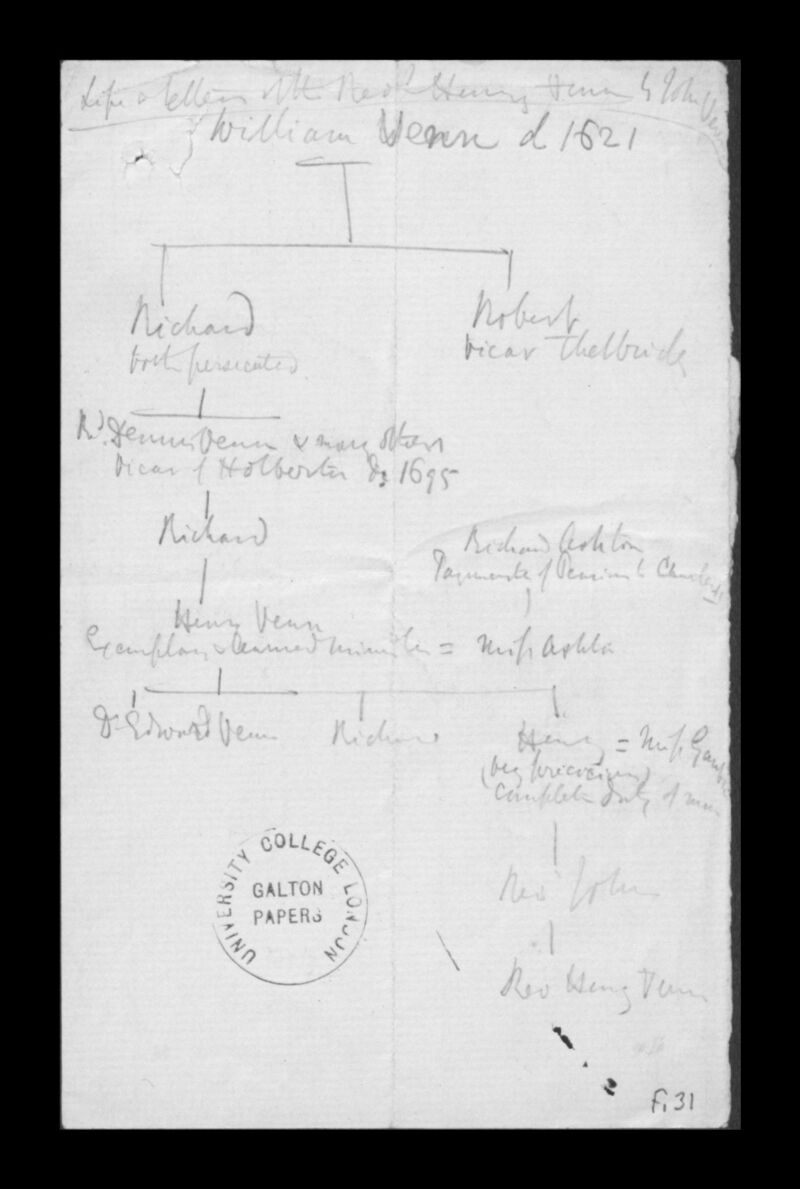 Life & Letters of the Revd Henry Venn by John Venn
William Venn d 1621
Richard
both persecuted
Robert
Vicar Thelbridge
Rd. Dennis Venn & many others
Vicar of Holberton D. 1695
Richard
Richard Ashton
Paymaster of Pensions to
Henry Venn
Exemplary & learned minister = Miss Ashton
Dr Edward Venn
Richard
Henry = Miss
complete duty of man
Rev John
Rev Henry Venn
UNIVERSITY COLLEGE LONDON
GALTON
PAPERS
F. 31